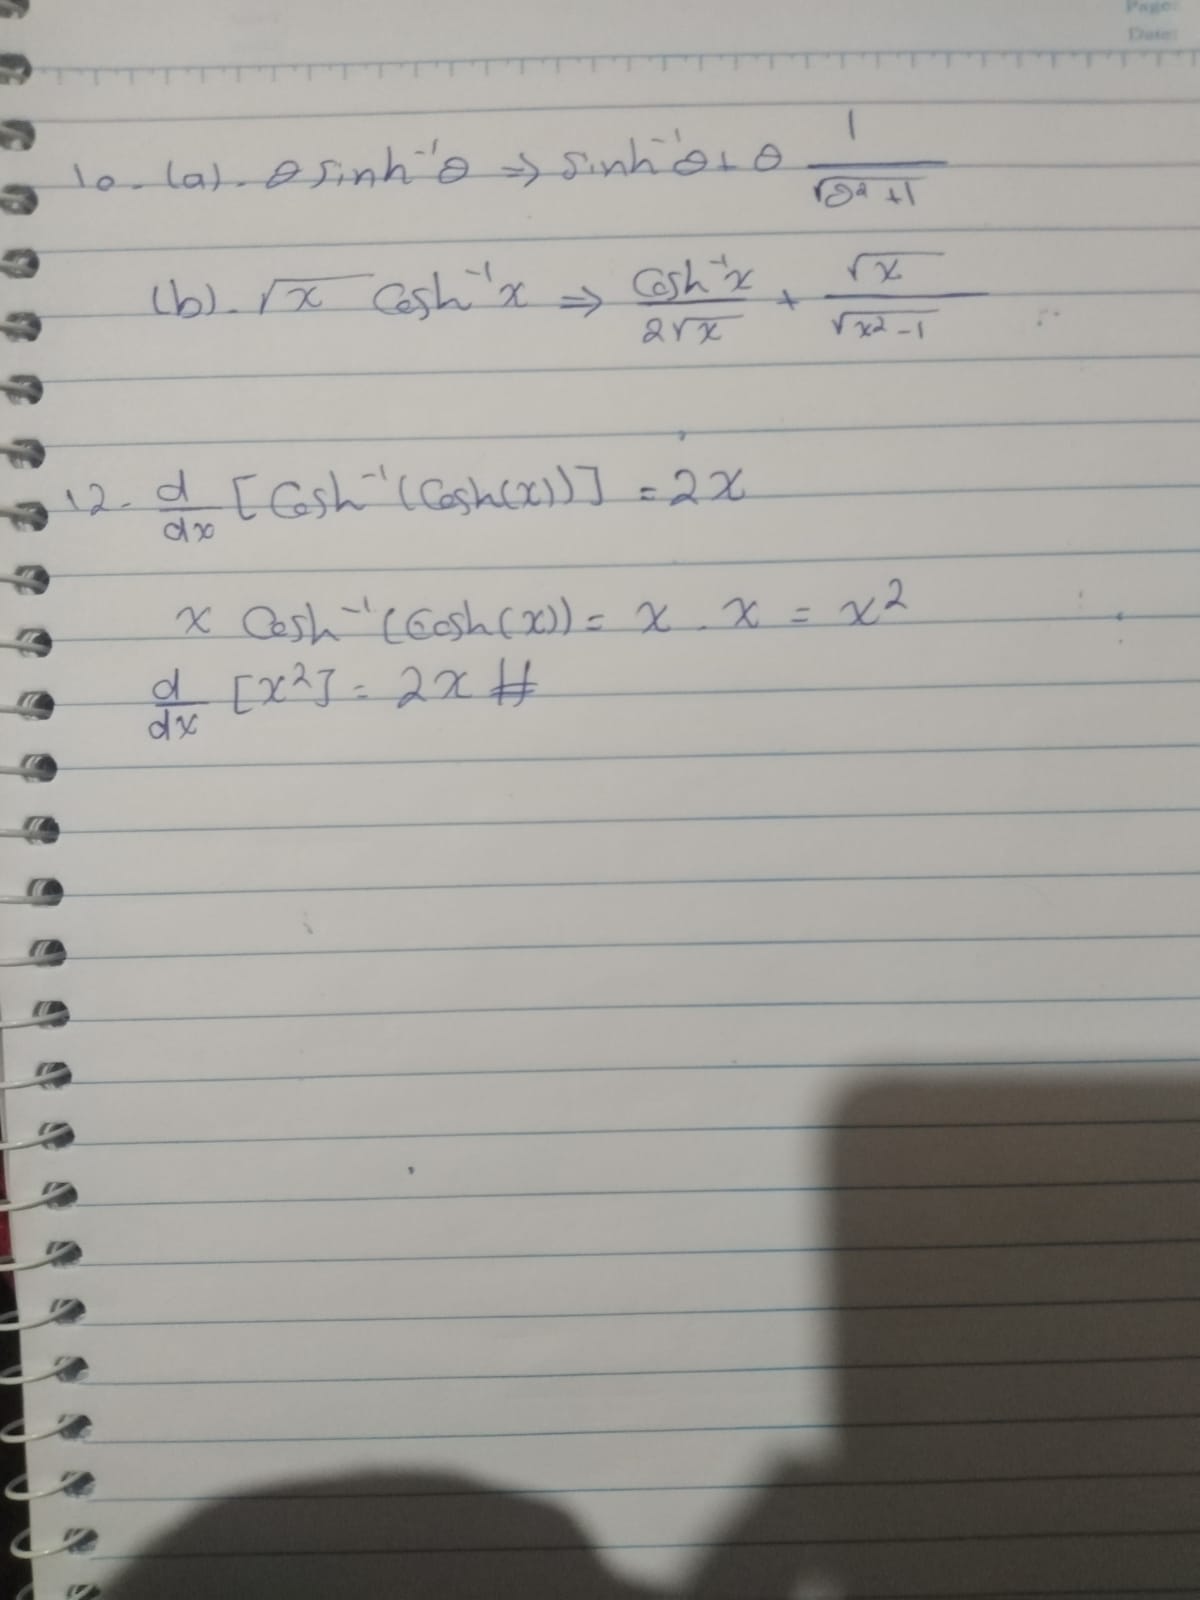 Page:
Date:
10. (a). θ sinh⁻¹θ ⇒ sinh⁻¹θ + θ 1/√(θ² + 1)
(b). √x Cosh⁻¹x ⇒ Cosh⁻¹x/(2√x) + √x/√(x² - 1)
12. d/dx [Cosh⁻¹(Cosh(x))] = 2x
x Cosh⁻¹(Cosh(x)) = x . x = x²
d/dx [x²] = 2x #